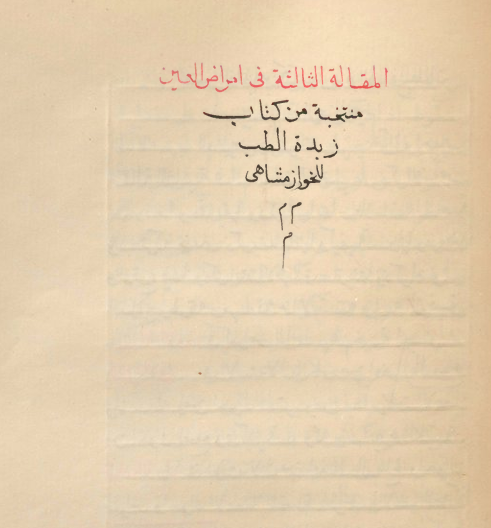 المقالة الثالثة فى امراض العين
منتخبة من كتاب
زبدة الطب
للخوازمشاهى
م م
م